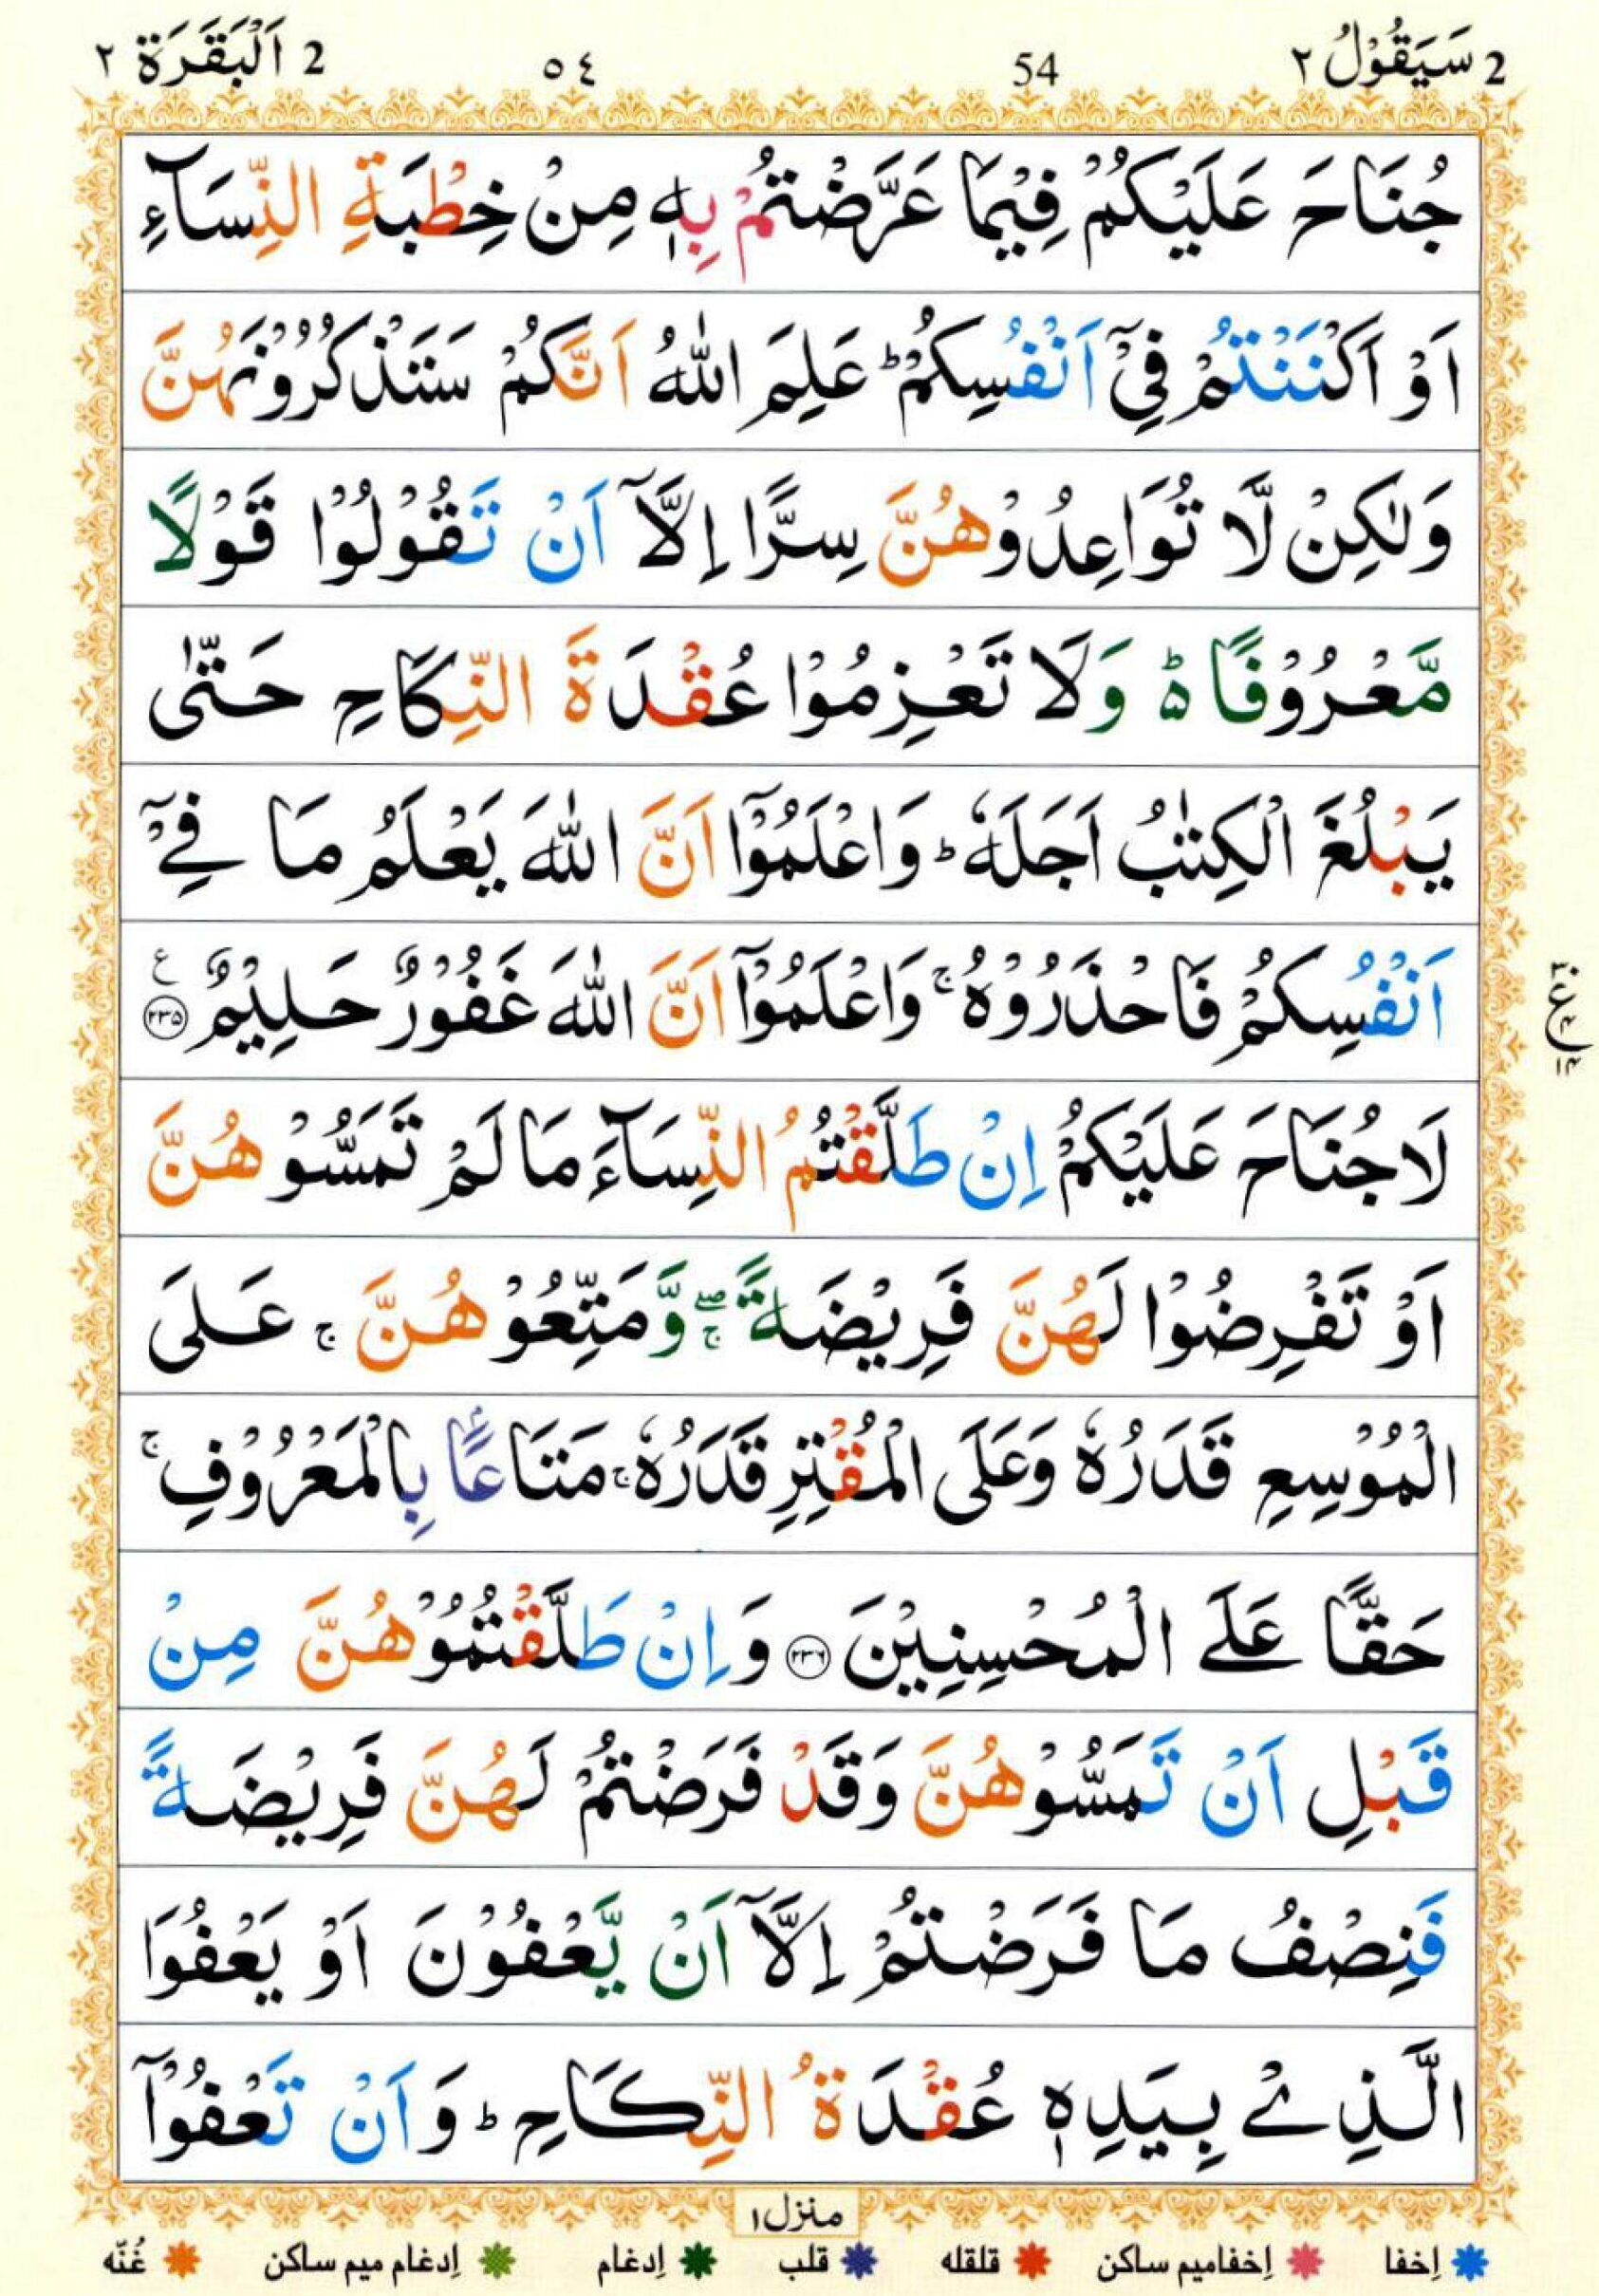 2 سَيَقُوْلُ ٢ 54 ٥٤ 2 اَلْبَقَرَة ٢
جُنَاحَ عَلَيْكُمْ فِيْمَا عَرَّضْتُمْ بِهٖ مِنْ خِطْبَةِ النِّسَآءِ
اَوْ اَكْنَنْتُمْ فِىْۤ اَنْفُسِكُمْ ؕ عَلِمَ اللّٰهُ اَنَّكُمْ سَتَذْكُرُوْنَهُنَّ
وَلٰكِنْ لَّا تُوَاعِدُوْهُنَّ سِرًّا اِلَّاۤ اَنْ تَقُوْلُوْا قَوْلًا
مَّعْرُوْفًا ؕ۬ وَلَا تَعْزِمُوْا عُقْدَةَ النِّكَاحِ حَتّٰى
يَبْلُغَ الْكِتٰبُ اَجَلَهٗ ؕ وَاعْلَمُوْۤا اَنَّ اللّٰهَ يَعْلَمُ مَا فِىْۤ
اَنْفُسِكُمْ فَاحْذَرُوْهُ ۚ وَاعْلَمُوْۤا اَنَّ اللّٰهَ غَفُوْرٌ حَلِيْمٌ ﴿۲۳۵﴾ ع
۳۰ ع ۴ ۱۴
لَا جُنَاحَ عَلَيْكُمْ اِنْ طَلَّقْتُمُ النِّسَآءَ مَا لَمْ تَمَسُّوْهُنَّ
اَوْ تَفْرِضُوْا لَهُنَّ فَرِيْضَةً ۖۚ وَّمَتِّعُوْهُنَّ ۚ عَلَى
الْمُوْسِعِ قَدَرُهٗ وَعَلَى الْمُقْتِرِ قَدَرُهٗ ۚ مَتَاعًاۢ بِالْمَعْرُوْفِ ۚ
حَقًّا عَلَى الْمُحْسِنِيْنَ ﴿۲۳۶﴾ وَاِنْ طَلَّقْتُمُوْهُنَّ مِنْ
قَبْلِ اَنْ تَمَسُّوْهُنَّ وَقَدْ فَرَضْتُمْ لَهُنَّ فَرِيْضَةً
فَنِصْفُ مَا فَرَضْتُمْ اِلَّاۤ اَنْ يَّعْفُوْنَ اَوْ يَعْفُوَا
الَّذِىْ بِيَدِهٖ عُقْدَةُ النِّكَاحِ ؕ وَاَنْ تَعْفُوْۤا
منزل ۱
اِخفا اِخفامیم ساکن قلقله قلب اِدغام اِدغام میم ساکن غُنّه